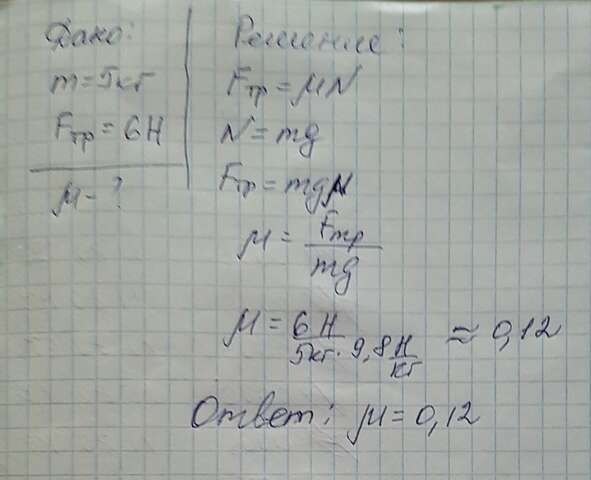 Дано:
m=5кг
Fтр = 6Н
μ - ?
Решение:
Fтр = μN
N = mg
Fтр = mgμ
μ = Fтр / mg
μ = 6 Н / 5кг · 9,8 Н/кг ≈ 0,12
Ответ: μ = 0,12